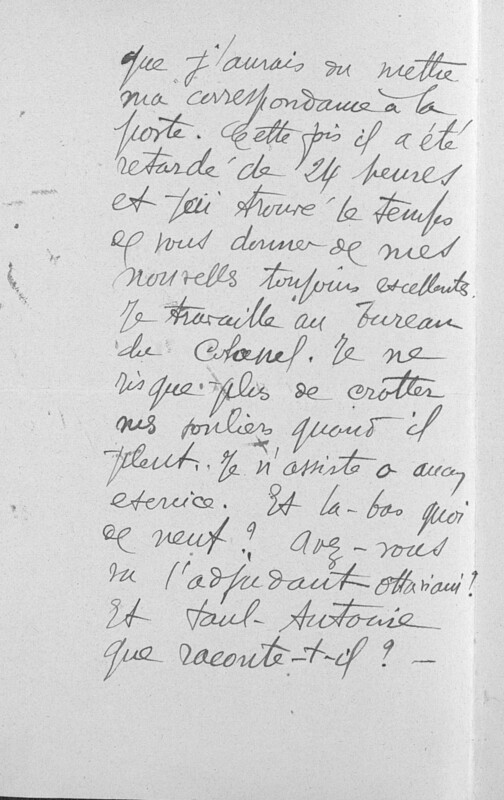 que j'aurais du mettre
ma correspondance à la
poste. Cette fois il a été
retardé de 24 heures
et j'ai trouvé le temps
de vous donner de mes
nouvelles toujours excellentes.
Je travaille au bureau
du Colonel. Je ne
risque plus de crotter
mes souliers quand il
pleut. Je n'assiste a aucun
exercice. Et la-bas quoi
de neuf? Avez-vous
vu l'adjudant Ottaviani?
Et Paul-Antoine
que raconte-t-il? —